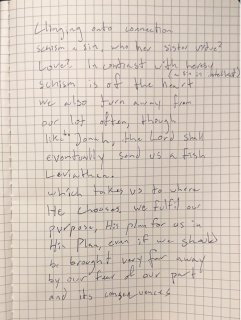 Clinging onto connection
schism a sin, who her sister virtue?
Love? In contrast with heresy
(a sin is intellect)
schism is of the heart
we also turn away from
our lot often, though
like Jonah, the Lord shall
eventually send us a fish
Leviathan
which takes us to where
He chooses, we fulfil our
purpose, His plan for us in
His Plan, even if we should
be brought very far away
by our fear of our part
and its consequences